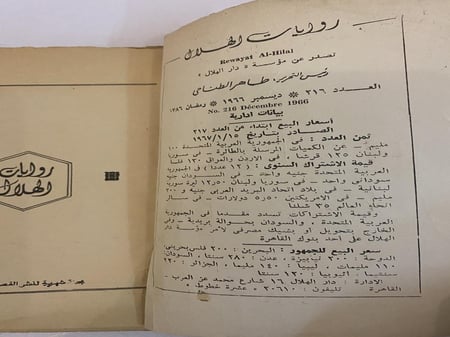 روايات الهلال
Rewayat Al-Hilal
تصدر عن مؤسسة « دار الهلال »
رئيس التحرير: طاهر الطناحي
العدد ٢١٦ * ديسمبر ١٩٦٦ * رمضان ١٣٨٦
No. 216 Décembre 1966
بيانات ادارية
أسعار البيع ابتداء من العدد ٢١٧
الصادر بتاريخ ١٩٦٧/١/١٥
ثمن العدد : في الجمهورية العربية المتحدة ١٠٠
مليم - عن الكميات المرسلة بالطائرة - في سوريا
ولبنان ١٢٥ قرشا - في الاردن والعراق ١٢٠ فلسا
قيمة الاشتراك السنوي : ( ١٢ عددا ) في الجمهورية
العربية المتحدة جنيه واحد - في السودان جنيه
سوداني واحد - في سوريا ولبنان ١٢٥٠ ليرة سورية
لبنانية - في بلاد اتحاد البريد العربي جنيه و ٣٠٠
مليم - في الامريكتين ٥٥٠ دولارات - في سائر
انحاء العالم ٣٥ شلنا
وقيمة الاشتراكات تسدد مقدما في الجمهورية
العربية المتحدة والسودان بحوالة بريدية - وفي
الخارج بتحويل أو بشيك مصرفي لأمر مؤسسة دار
الهلال على أحد بنوك القاهرة
سعر البيع للجمهور : البحرين : ٢٠٠ فلس بحريني
الدوحة : ٢٠٠ نيابيزة ، عدن : ٢٨٠ سنتا ، السودان :
١١٠ مليمات ، ليبيا : ١٤٠ مليما ، الجزائر : ٢٢٠
سنتيما ، اثيوبيا : ١٢٠ سنتا
الادارة : دار الهلال ١٦ شارع محمد عز العرب -
القاهرة تليفون : ٢٠٦١٠ « عشرة خطوط »
روايات
الهلال
شهرية لنشر القصص